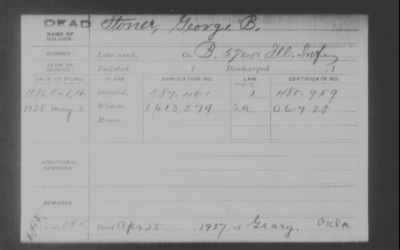 DEAD
NAME OF SOLDIER: Stoner, George B.
SERVICE: Late rank, Co B. 57 Ill. Inf
TERM OF SERVICE: Enlisted , 1 Discharged , 1
DATE OF FILING CLASS APPLICATION NO. LAW CERTIFICATE NO.
1886 Oct. 16 Invalid, 587.461 480.959
1928 May 3 Widow, 1613574 a 6-7-28
Minor,
ADDITIONAL SERVICES:
REMARKS:
Died Apr 25 1927, at Geary, Okla